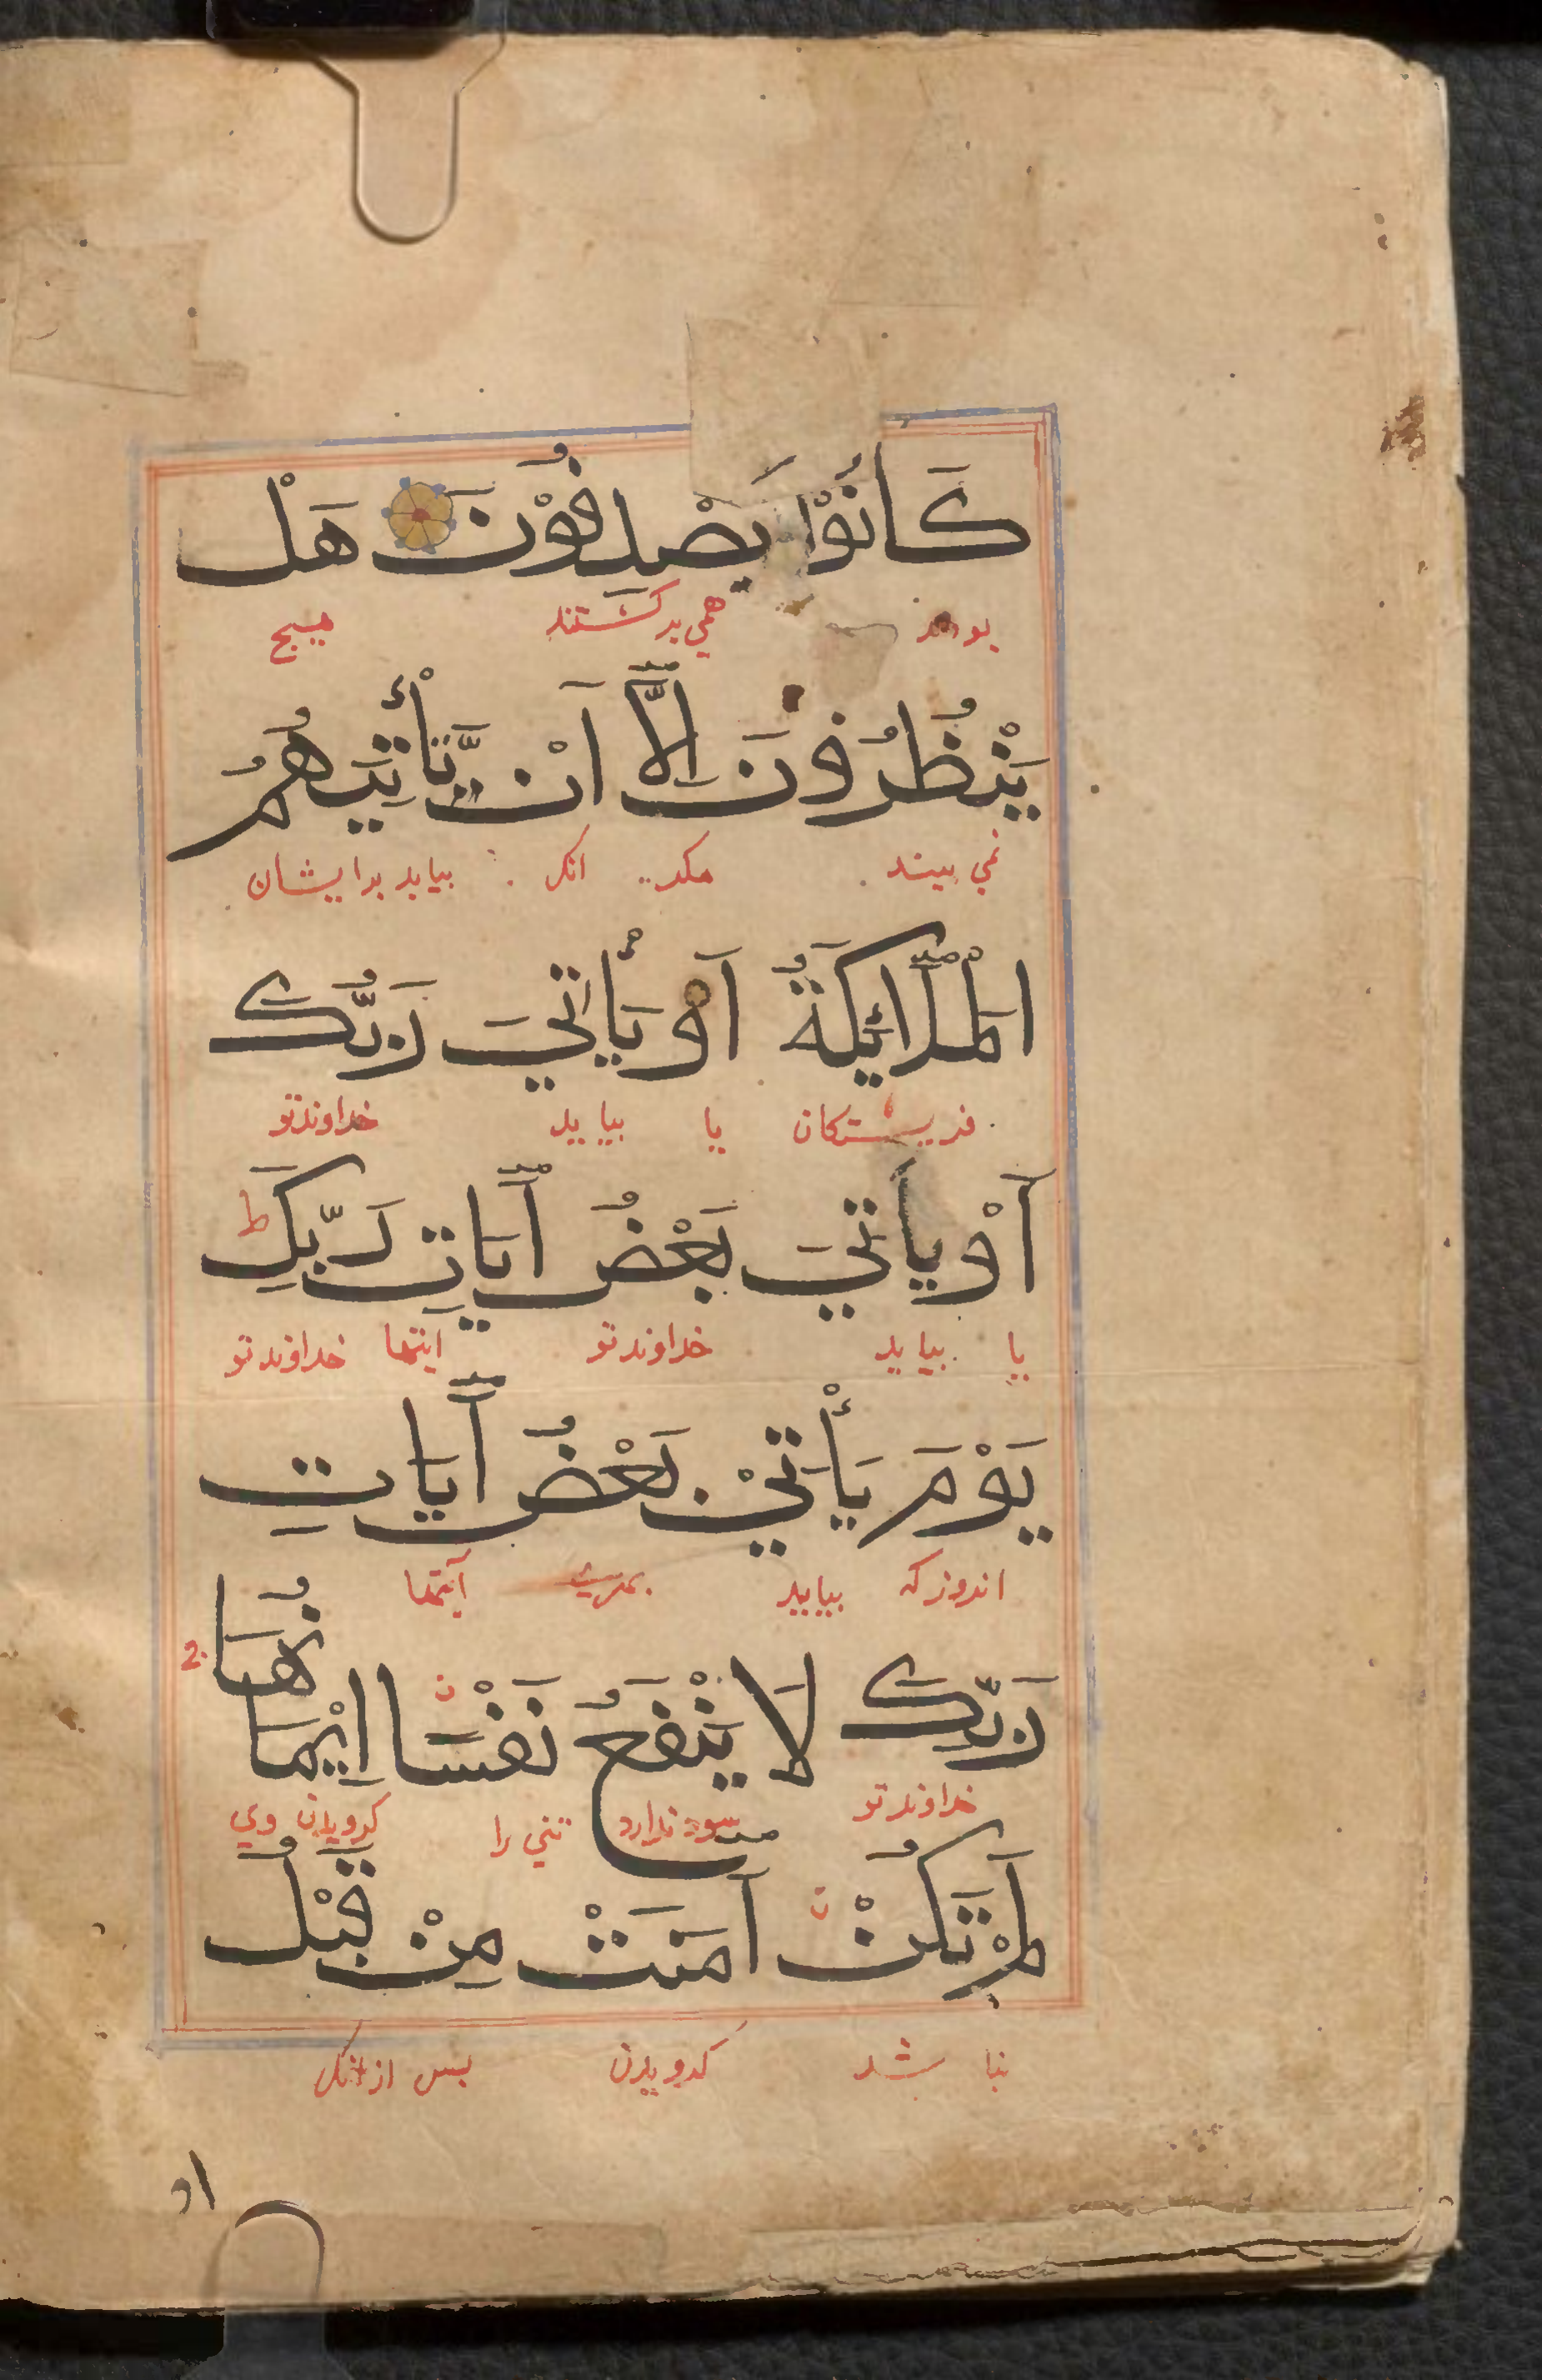 كَانُوْا يَصْدِفُوْنَ هَلْ
بودند همی برکشتند هیچ
يَنْظُرُوْنَ اِلَّا اَنْ يَّأْتِيَهُمُ
نمی بینند مکر انک بیاید بدایشان
الْمَلَائِكَةُ اَوْ يَأْتِيَ رَبُّكَ
فریشتکان یا بیاید خداوندتو
اَوْ يَأْتِيَ بَعْضُ اٰيَاتِ رَبِّكَ ط
یا بیاید خداوندتو ایتها خداوندتو
يَوْمَ يَأْتِيْ بَعْضُ اٰيَاتِ
اندوزکه بیاید آیتها
رَبِّكَ لَا يَنْفَعُ نَفْسًا اِيْمَانُهَا
خداوندتو سود ندارد تنی را کرویدن وی
لَمْ تَكُنْ اٰمَنَتْ مِنْ قَبْلُ
نبا شد کرویدن بس ازانک
او